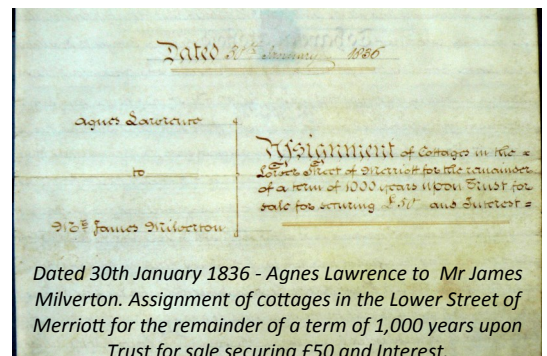 Dated 30th January 1836
Agnes Lawrence
to
Mr. James Milverton
Assignment of Cottages in the =
Lower Street of Merriott for the remainder
of a term of 1000 years upon Trust for
sale for securing £50 and Interest =
Dated 30th January 1836 - Agnes Lawrence to Mr James
Milverton. Assignment of cottages in the Lower Street of
Merriott for the remainder of a term of 1,000 years upon
Trust for sale securing £50 and Interest.